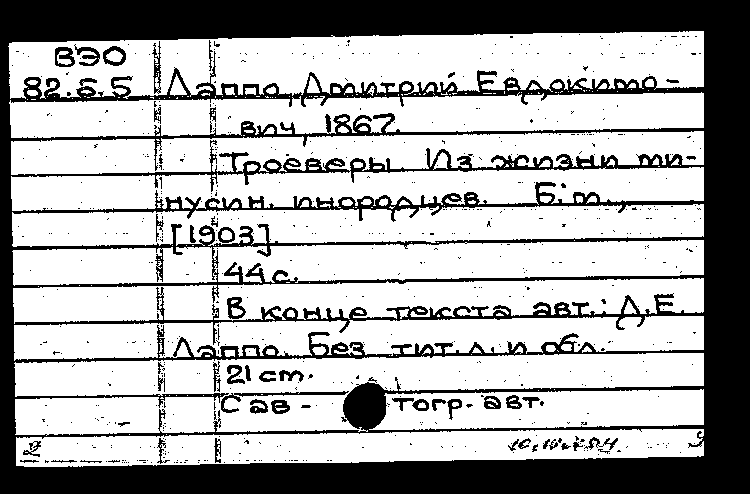 ВЭО
82.5.5 Лаппо, Дмитрий Евдокимо-
вич, 1867.
Троеверы. Из жизни ми-
нусин. инородцев. Б. м.,
[1903].
44 с.
В конце текста авт.: Д.Е.
Лаппо. Без тит. л. и обл.
21 cm.
С ав- тогр. авт.